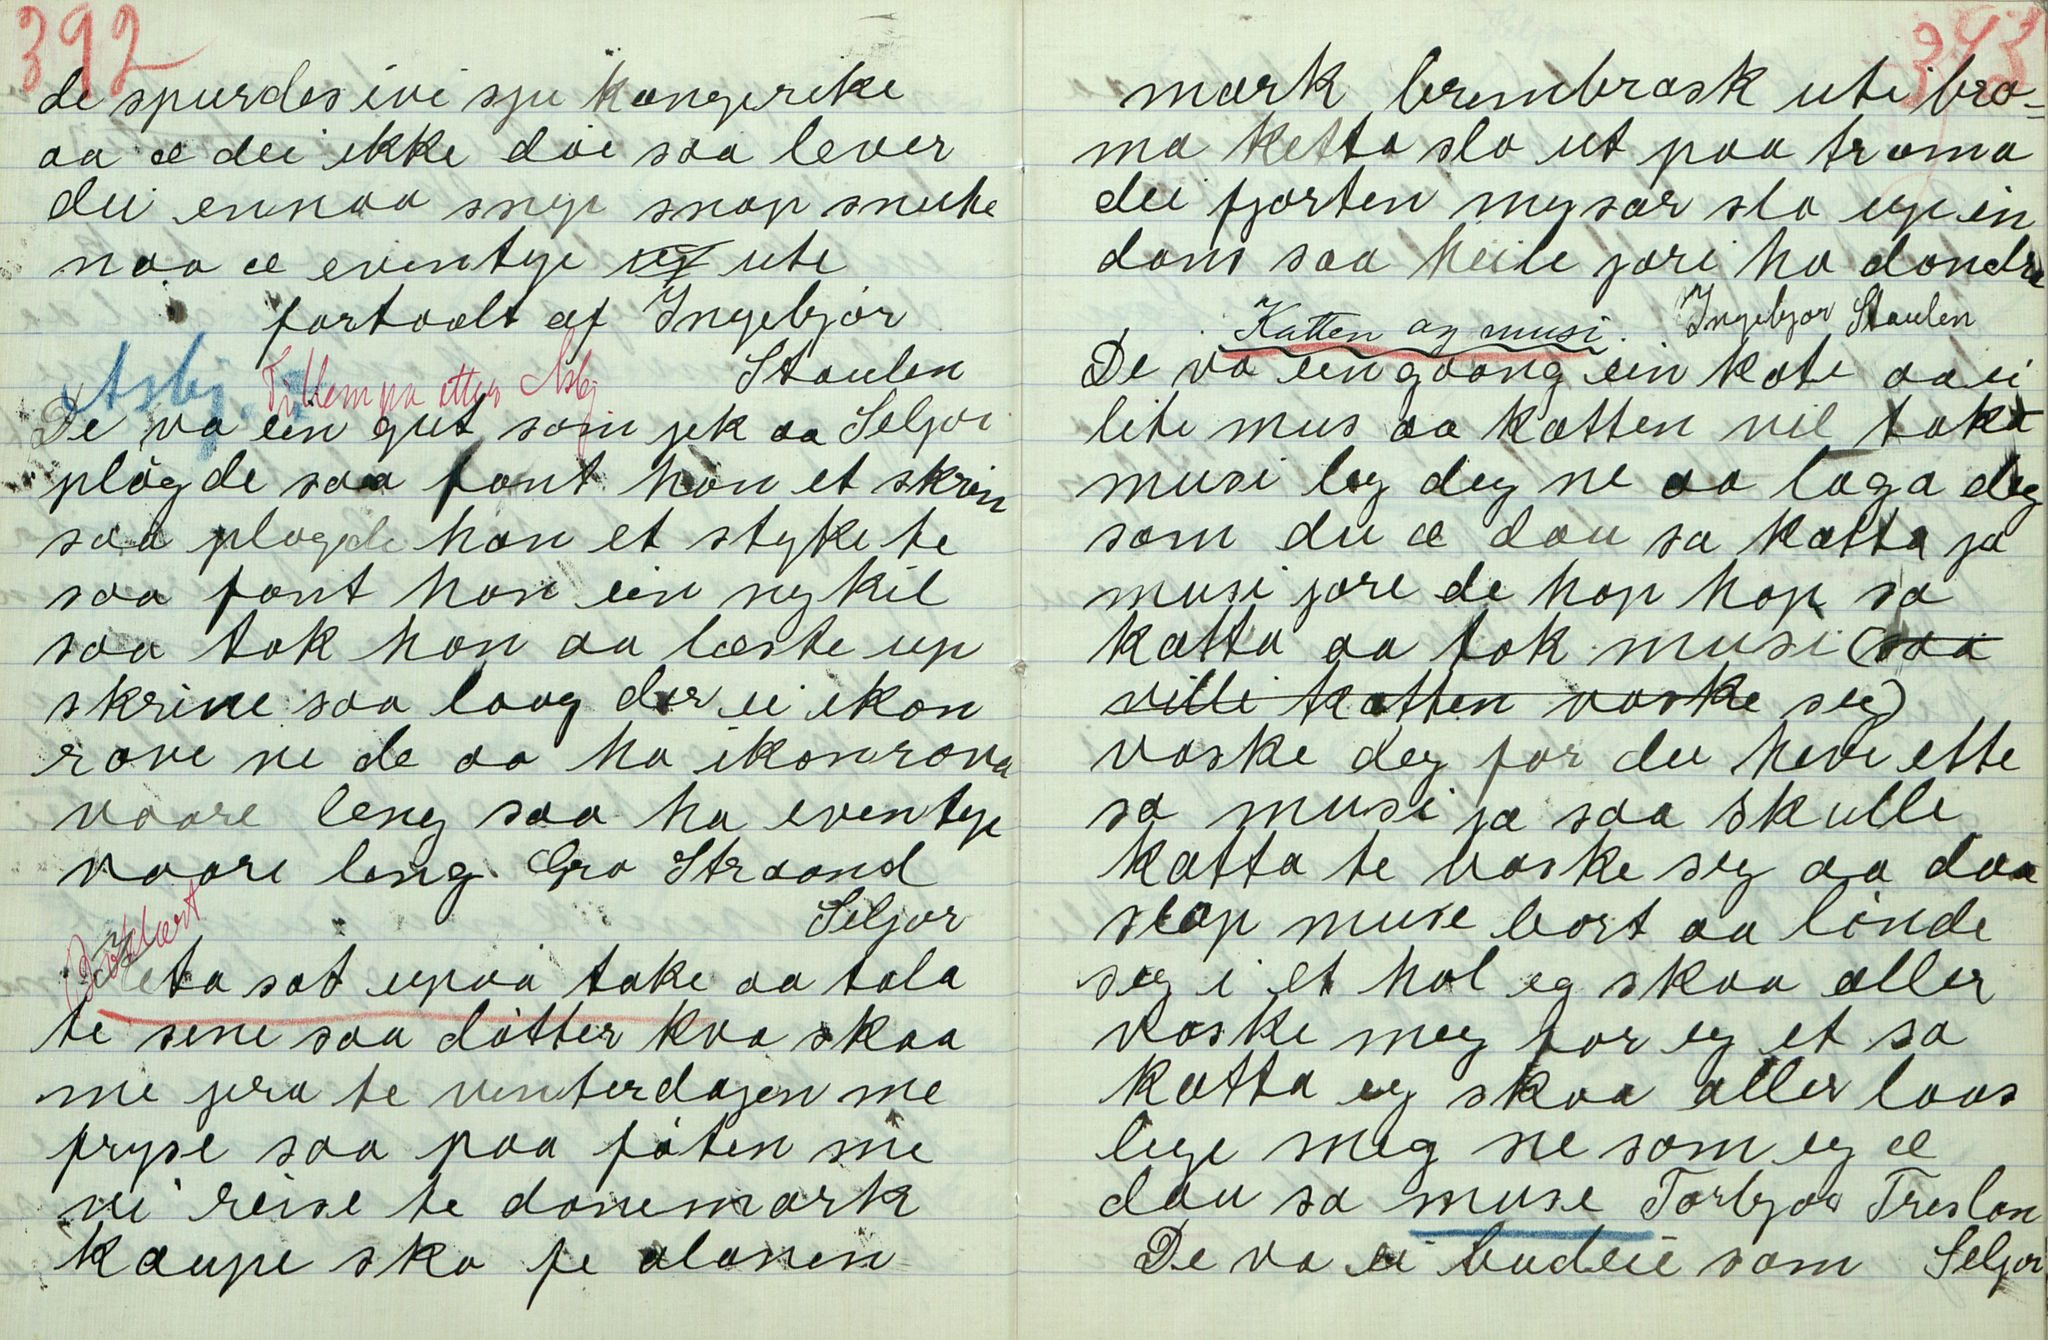 392
de spurdes ivi sju kongerike
aa æ dei ikke döe saa lever
dei ennaa snip snap snute
naa æ eventye ute
fortaalt af Ingebjör
Staulen
Asbj.
De va ein gut som jek aa Seljor
plögde saa fant han et skrin
saa plögde han et styke te
saa fant han ein nykil
saa tok han aa læste up
skrine saa laag der ei ikon
rove ne de aa ha ikonrova
vaare leng saa ha eventye
vaare leng. Gro Straand
Seljor
Keta sat upaa take aa tala
te sene saa dötter kva skaa
me jera te vinterdagen me
fryse saa paa föten me
vi reise te danemark
kaupe sko fe alanen
393
mark brembrask uti bra-
ma ketta slo ut paa trama
dei fjorten mysar slo up ein
dans saa heile jori ha dandra
Ingebjor Staulen
Katten og musi.
De va eingaang ein kate aa ei
lite mus aa katten vil taka
musi leg deg ne aa laga deg
som du æ dau sa katta ja
musi jore de hop hop sa
katta aa tok musi (saa
ville katten vaske seg)
vaske deg for du heve ette
sa musi ja saa skulle
katta te vaske seg aa daa
slap muse bort aa lönde
seg i et hol eg skaa aller
vaske meg for eg et sa
katta eg skaa aller laas
lege meg ne som eg æ
dau sa muse Torbjor Treslan
De va ei budeie som Seljor